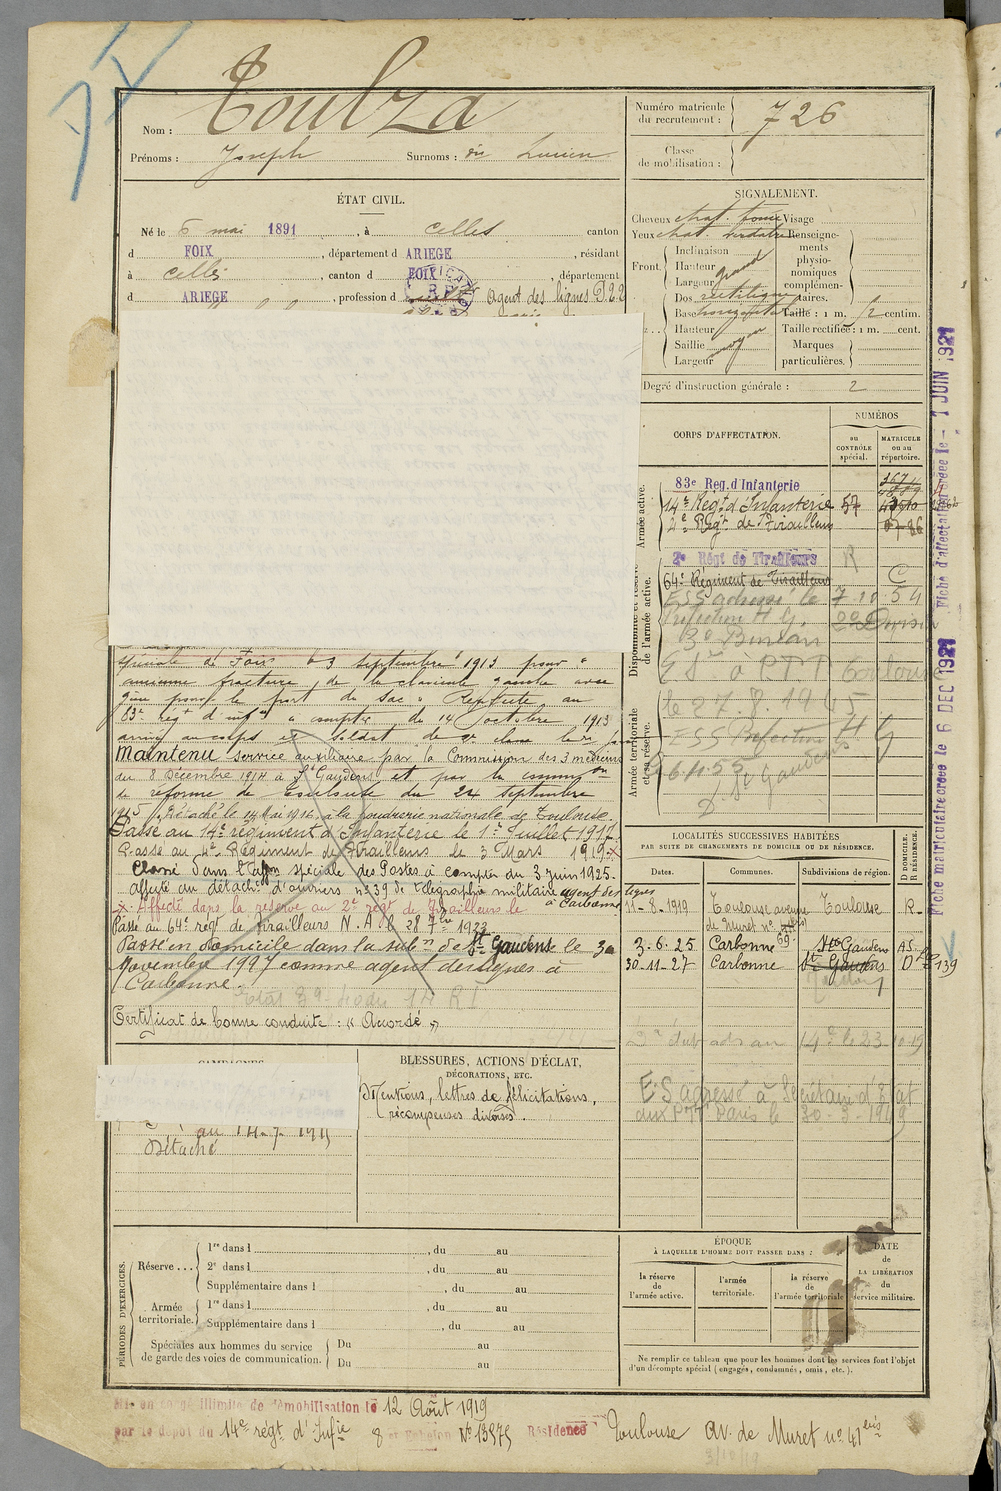 Nom : Toulza
Prénoms : Joseph Surnoms : dit Lucien
Numéro matricule du recrutement : 726
Classe de mobilisation :
ÉTAT CIVIL.
Né le 6 mai 1891, à Celles canton
d FOIX, département d ARIEGE, résidant
à Celles, canton d FOIX, département
d ARIEGE, profession d Agent des lignes P.T.T
SIGNALEMENT.
Cheveux chat. foncé Visage
Yeux chat. verdatre Renseignements physionomiques complémentaires.
Front. Inclinaison
Hauteur grand
Largeur
Dos rectiligne
Base horizontale Taille : 1 m. 72 centim.
Hauteur Taille rectifiée : 1 m. cent.
Saillie moyen Marques
Largeur particulières.
Degré d'instruction générale : 2
CORPS D'AFFECTATION.
NUMÉROS
au CONTRÔLE spécial.
MATRICULE ou au répertoire.
Armée active.
83e Reg. d'Infanterie
14e Régt d'Infanterie 57
2e Régt de Tirailleurs
Disponibilité et réserve de l'armée active.
2e Régt de Tirailleurs R
64e Régiment de Tirailleurs C
ESS adressé le 7 10 54
Préfecture H G. 2e Division
3e Bureau
à PTT Toulouse
le 27.8.1945
Armée territoriale et sa réserve.
ESS Préfecture H G
26.4.55
St Gaudens
spéciale de Foix le 3 septembre 1913 pour "
ancienne fracture de la clavicule gauche avec
gêne pour le port du sac". Affecté au
83e régt d'infie à compter du 14 octobre 1913
arrivé au corps et soldat de 2e classe le dit jour
Maintenu service auxiliaire par la Commission des 3 médecins
du 8 Décembre 1914 à St Gaudens et par la common
de réforme de Toulouse du 24 septembre
1915. Détaché le 14 Mai 1916 à la poudrerie nationale de Toulouse.
Passé au 14e régiment d'Infanterie le 1er Juillet 1917.
Passé au 4e Régiment de Tirailleurs le 3 Mars 1919 X
Classé dans l'affon spéciale des Postes à compter du 3 juin 1925.
affecté au détacht d'ouvriers no 39 de télégraphie militaire agent des lignes
à Carbonne
X Affecté dans la réserve au 2e régt de Tirailleurs le
Passé au 64e régt de Tirailleurs N.A. le 28 7bre 1923
Passé en domicile dans la subn de St Gaudens le 30
Novembre 1927 comme agent des lignes à
Carbonne.
Certificat de bonne conduite : "Accordé"
LOCALITÉS SUCCESSIVES HABITÉES
PAR SUITE DE CHANGEMENTS DE DOMICILE OU DE RÉSIDENCE.
Dates. Communes. Subdivisions de région. D DOMICILE. R RÉSIDENCE.
11-8-1919 Toulouse avenue de Muret no Toulouse R
3.6.25 Carbonne St Gaudens AS.
30-11-27 Carbonne St Gaudens D 139
14e le 23-10-19
ES adressé à Secrétaire d'Etat
aux PTT Paris le 30-3-1949
CAMPAGNES
au 14-7-1915
Détaché
BLESSURES, ACTIONS D'ÉCLAT,
DÉCORATIONS, ETC.
Mentions, lettres de félicitations,
récompenses diverses.
PÉRIODES D'EXERCICES.
Réserve... 1re dans l , du au
2e dans l , du au
Supplémentaire dans l , du au
Armée territoriale. 1re dans l , du au
Supplémentaire dans l , du au
Spéciales aux hommes du service de garde des voies de communication. Du au
Du au
ÉPOQUE
À LAQUELLE L'HOMME DOIT PASSER DANS :
la réserve de l'armée active.
l'armée territoriale.
la réserve de l'armée territoriale
DATE de LA LIBÉRATION du service militaire.
Ne remplir ce tableau que pour les hommes dont les services font l'objet
d'un décompte spécial (engagés, condamnés, omis, etc.).
Mis en congé illimité de démobilisation le 12 Août 1919
par le dépôt du 14e régt d'Infie 8e Echelon No 13575 Résidence Toulouse av. de Muret no 41 bis
Fiche matriculaire créée le 6 DEC 1927 Fiche d'affectation créée le - 1 JUIN 1927